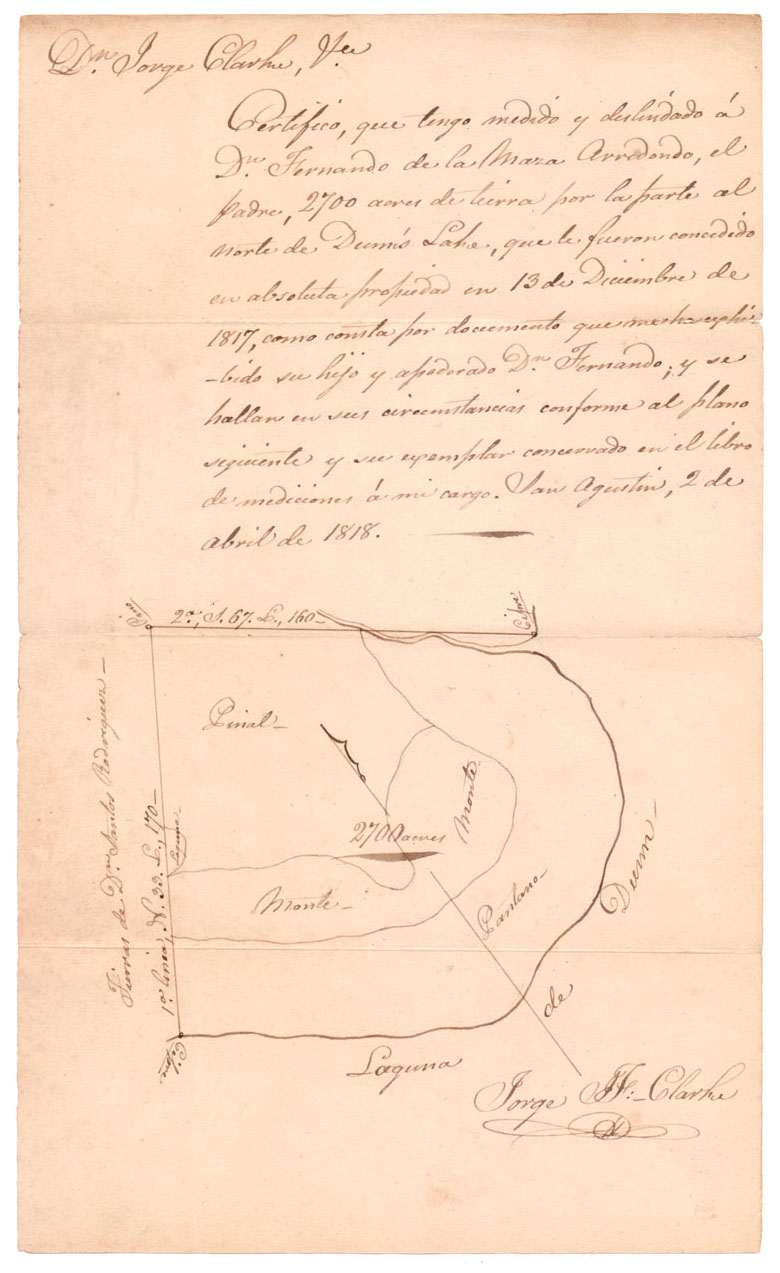 Dn. Jorge Clarke, &ee
Certifico, que tengo medido y deslindado á
Dn. Fernando de la Maza Arredondo, el
padre, 2700 acres de tierra por la parte al
norte de Dunn's Lake, que le fueron concedido
en absoluta propiedad en 13 de Diciembre de
1817, como consta por documento que me ha exhi-
-bido su hijo y apoderado Dn. Fernando; y se
hallan en sus circumstancias conforme al plano
siguiente y su exemplar concervado en el libro
de mediciones á mi cargo. San Agustin, 2 de
abril de 1818.
Pino
2a., S. 67. E., 160-
Cipre
Tierras de Dn. Santos Rodriguez-
1a. linea, N. 33. E., 170-
Laguna
Pinal-
Monte-
2700 acres
Monte-
Pantano-
Laguna
de
Dunn-
Cipre
Jorge J. F.:- Clarke